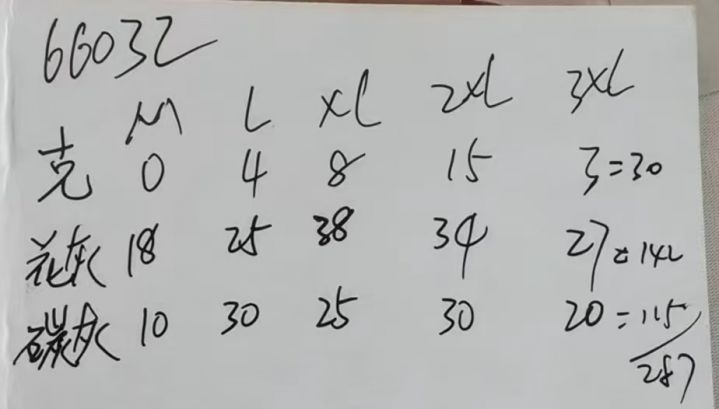 66032
M L XL 2XL 3XL
克 0 4 8 15 3=30
花灰 18 25 38 34 27=142
碳灰 10 30 25 30 20=115
287